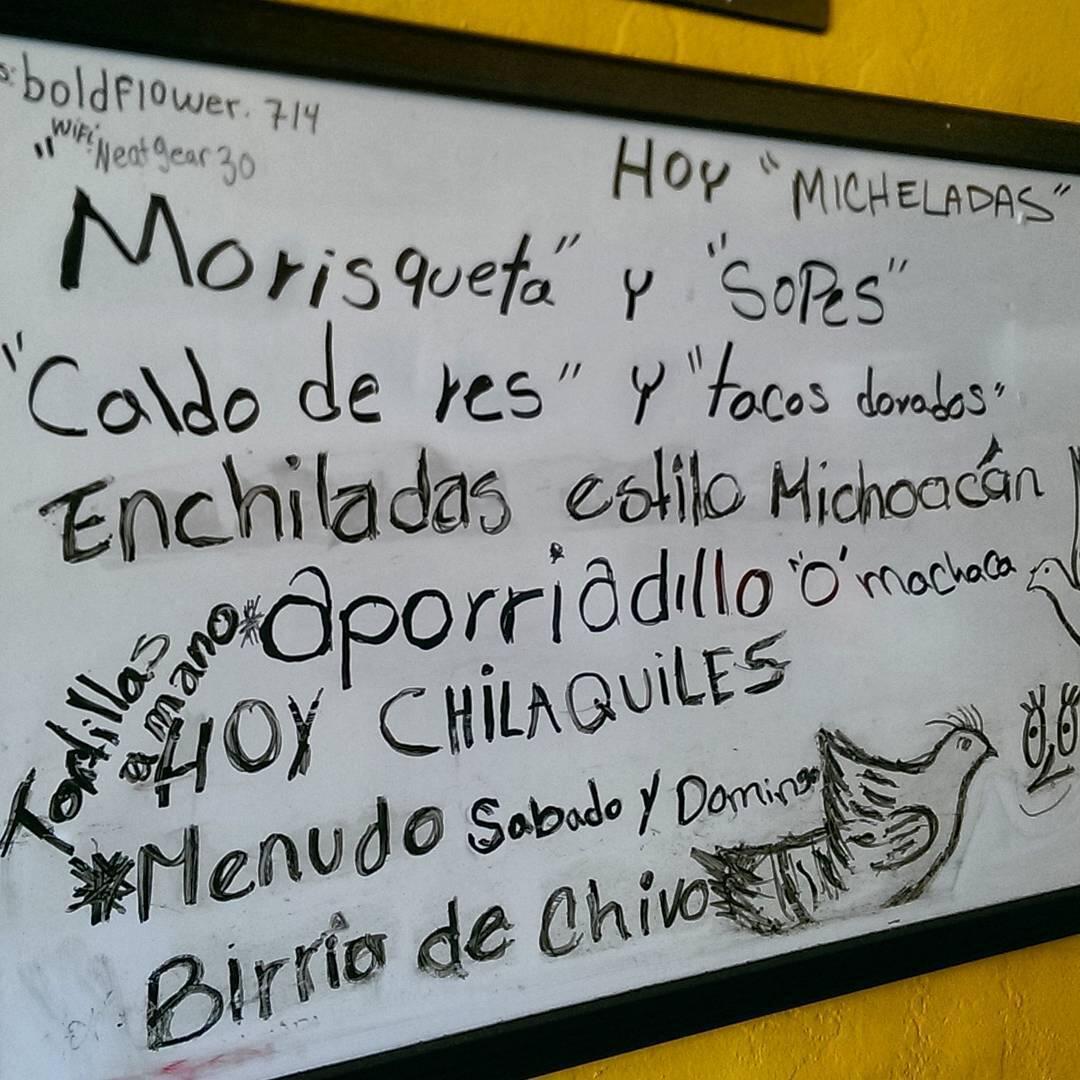 s: boldflower.714
"WiFi Neatgear30
Hoy "MICHELADAS"
Morisqueta" y "SOPes"
"Caldo de res" y "tacos dorados"
Enchiladas estilo Michoacán
*aporriadillo "O" machaca
Tortillas
a mano
HOY CHiLAQUiLES
*Menudo Sabado y Domingo
Birria de Chivo